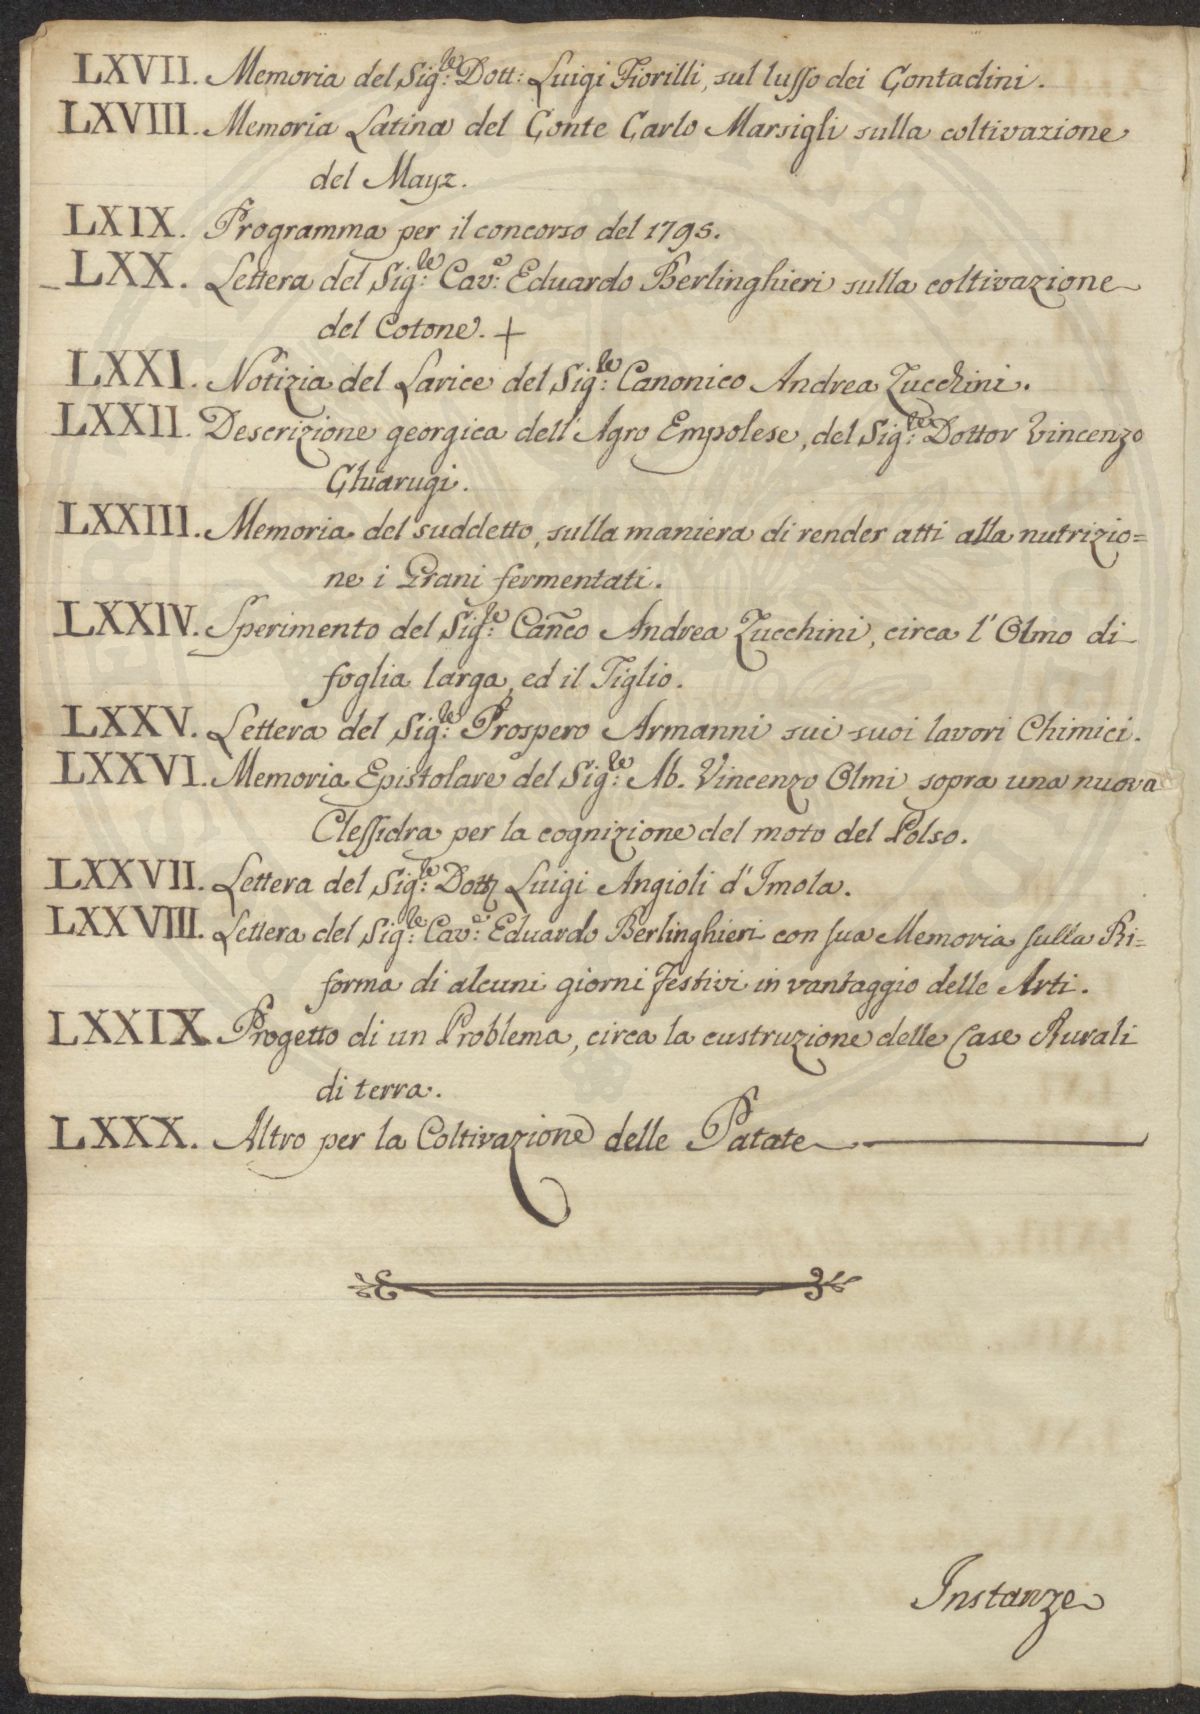 LXVII. Memoria del Sig.le Dott: Luigi Fiorilli, sul lusso dei Contadini.
LXVIII. Memoria Latina del Conte Carlo Marsigli sulla coltivazione
del Mayz.
LXIX. Programma per il concorso del 1795.
LXX. Lettera del Sig.le Cav.e Eduardo Berlinghieri sulla coltivazione
del Cotone. +
LXXI. Notizia del Larice del Sig.le Canonico Andrea Zucchini.
LXXII. Descrizione georgica dell' Agro Empolese, del Sig.le Dottor Vincenzo
Chiarugi.
LXXIII. Memoria del suddetto, sulla maniera di render atti alla nutrizio=
ne i Grani fermentati.
LXXIV. Sperimento del Sig.le Cañco Andrea Zucchini, circa l'Olmo di
foglia larga, ed il Tiglio.
LXXV. Lettera del Sig.le Prospero Armanni sui suoi lavori Chimici.
LXXVI. Memoria Epistolare del Sig.le Ab. Vincenzo Olmi sopra una nuova
Clessidra per la cognizione del moto del Polso.
LXXVII. Lettera del Sig.le Dott. Luigi Angioli d'Imola.
LXXVIII. Lettera del Sig.le Cav.e Eduardo Berlinghieri con sua Memoria sulla Ri=
forma di alcuni giorni Festivi in vantaggio delle Arti.
LXXIX. Progetto di un Problema, circa la custruzione delle Case Rurali
di terra.
LXXX. Altro per la Coltivazione delle Patate
Instanze